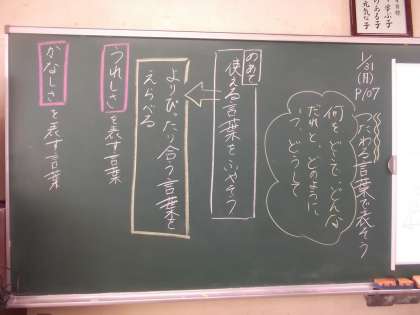 1/31
(月)
P107
つたわる言葉で表そう
何を、どこで、どんな
だれと、どのように
いつ、どうして
のあて
使える言葉をふやそう
よりぴったり合う言葉を
えらべる
うれしさを表す言葉
かなしさを表す言葉